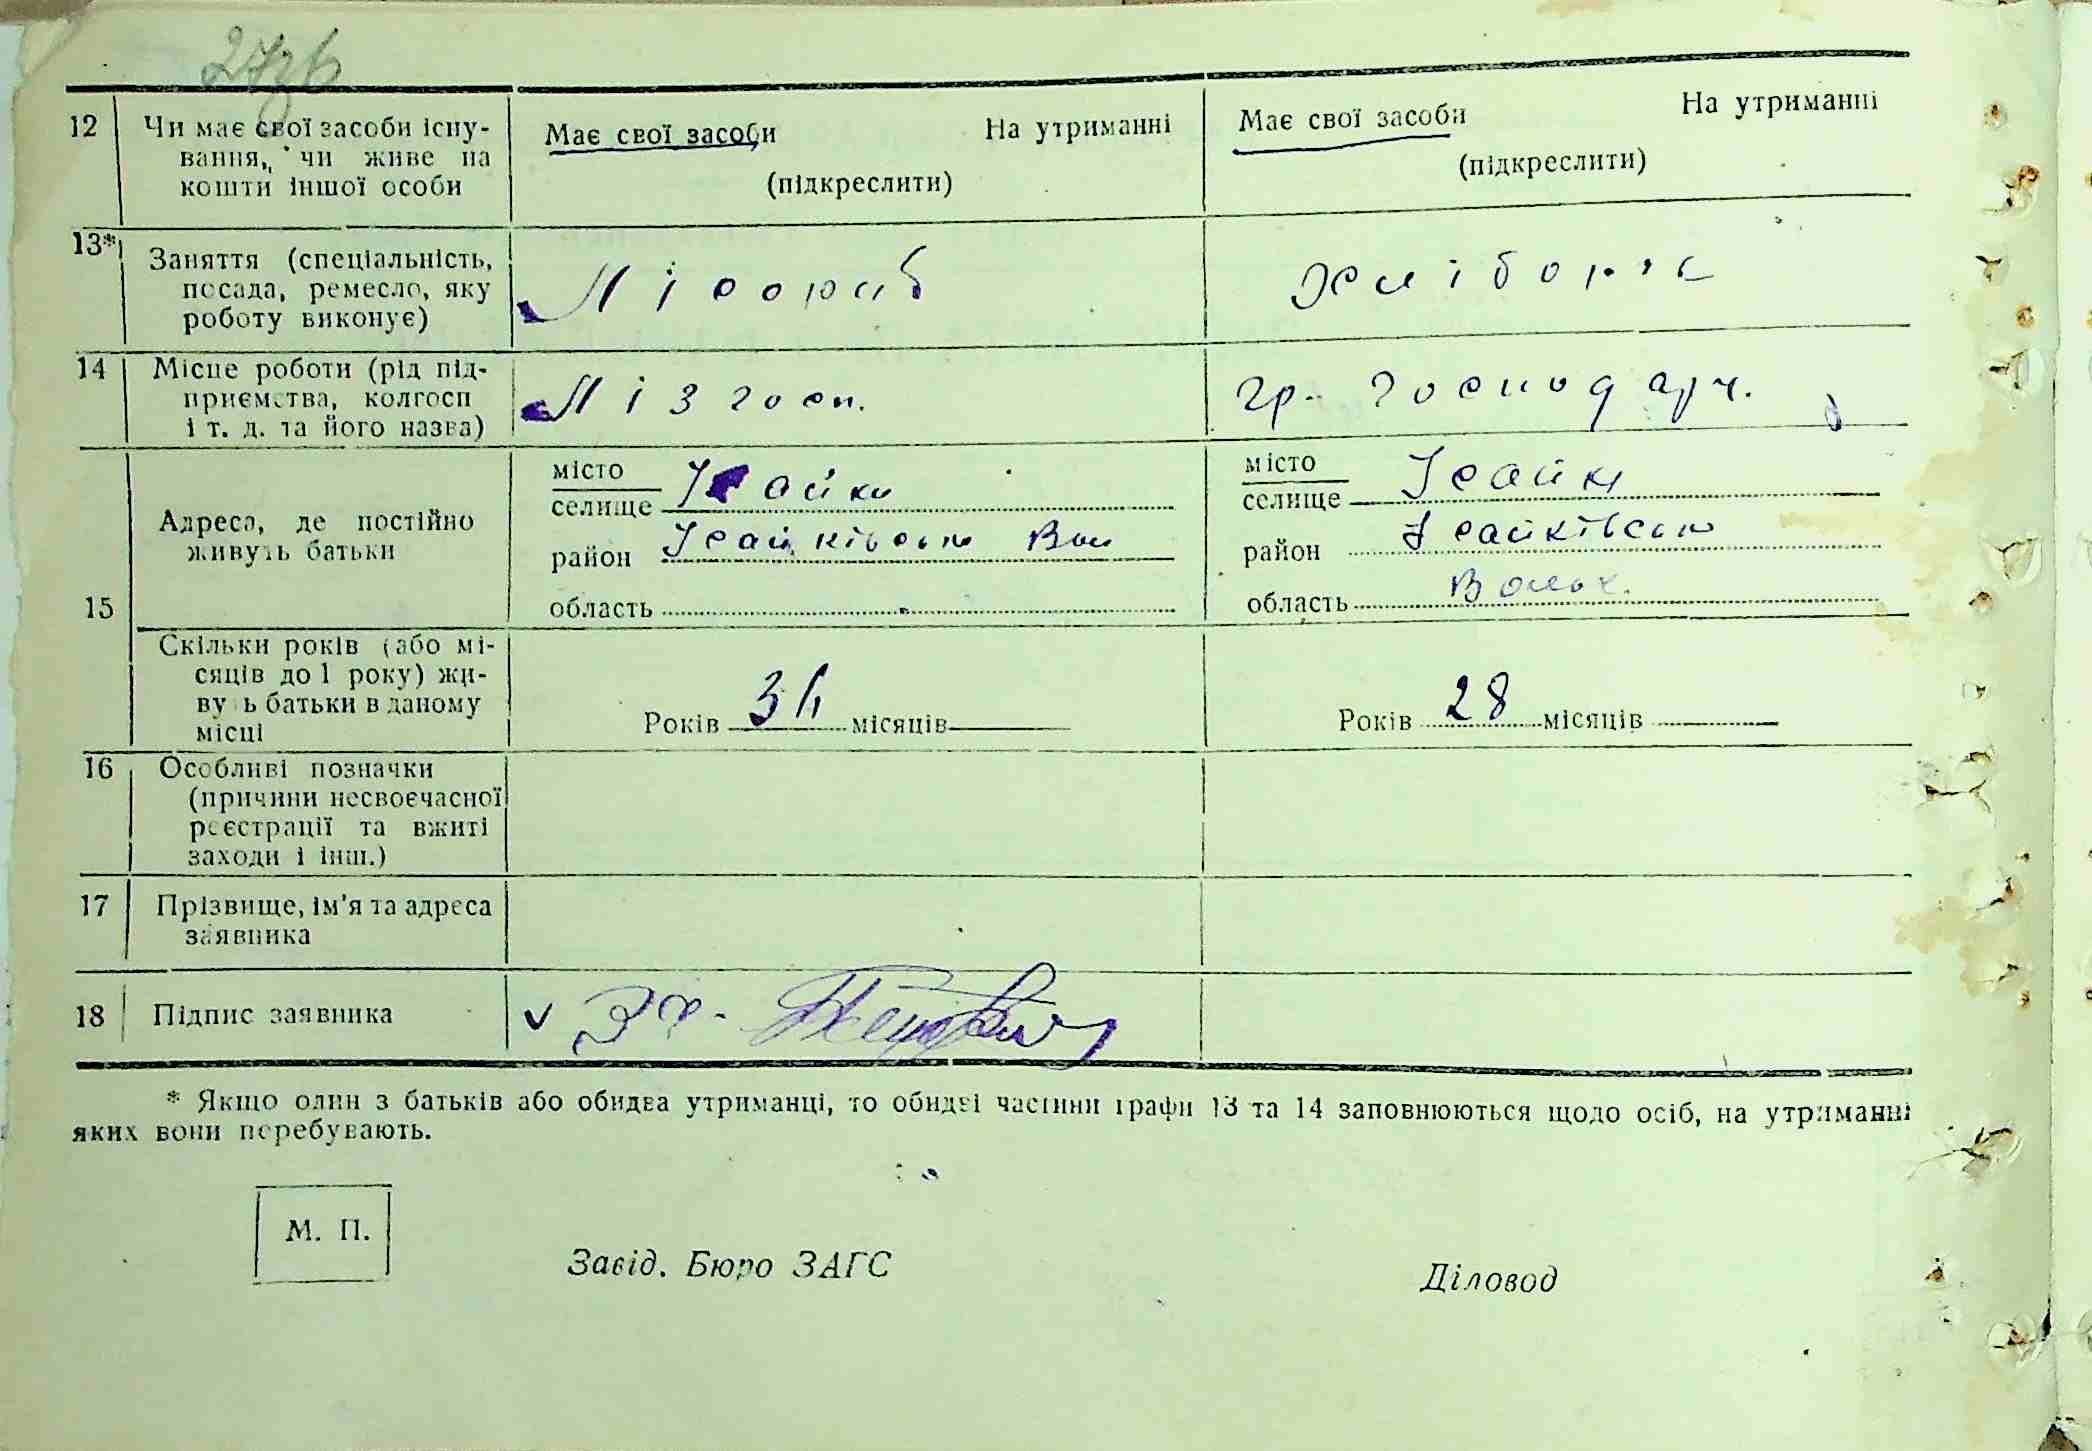 27зв
12 Чи має свої засоби існу-
вання, чи живе на
кошти іншої особи
Має свої засоби На утриманні
(підкреслити)
Має свої засоби На утриманні
(підкреслити)
13* Заняття (спеціальність,
посада, ремесло, яку
роботу виконує)
Лісоруб
Хлібороб
14 Місце роботи (рід під-
приємства, колгосп
і т. д. та його назва)
Лізгосп.
гр. господарч.
15 Адреса, де постійно
живуть батьки
місто
селище
район
область
місто
селище
район
область Волох.
Скільки років (або мі-
сяців до 1 року) жи-
вуть батьки в даному
місці
Років 34 місяців
Років 28 місяців
16 Особливі позначки
(причини несвоєчасної
реєстрації та вжиті
заходи і інш.)
17 Прізвище, ім'я та адреса
заявника
18 Підпис заявника
* Якщо один з батьків або обидва утриманці, то обидві частини графи 13 та 14 заповнюються щодо осіб, на утриманні
яких вони перебувають.
М. П.
Завід. Бюро ЗАГС
Діловод